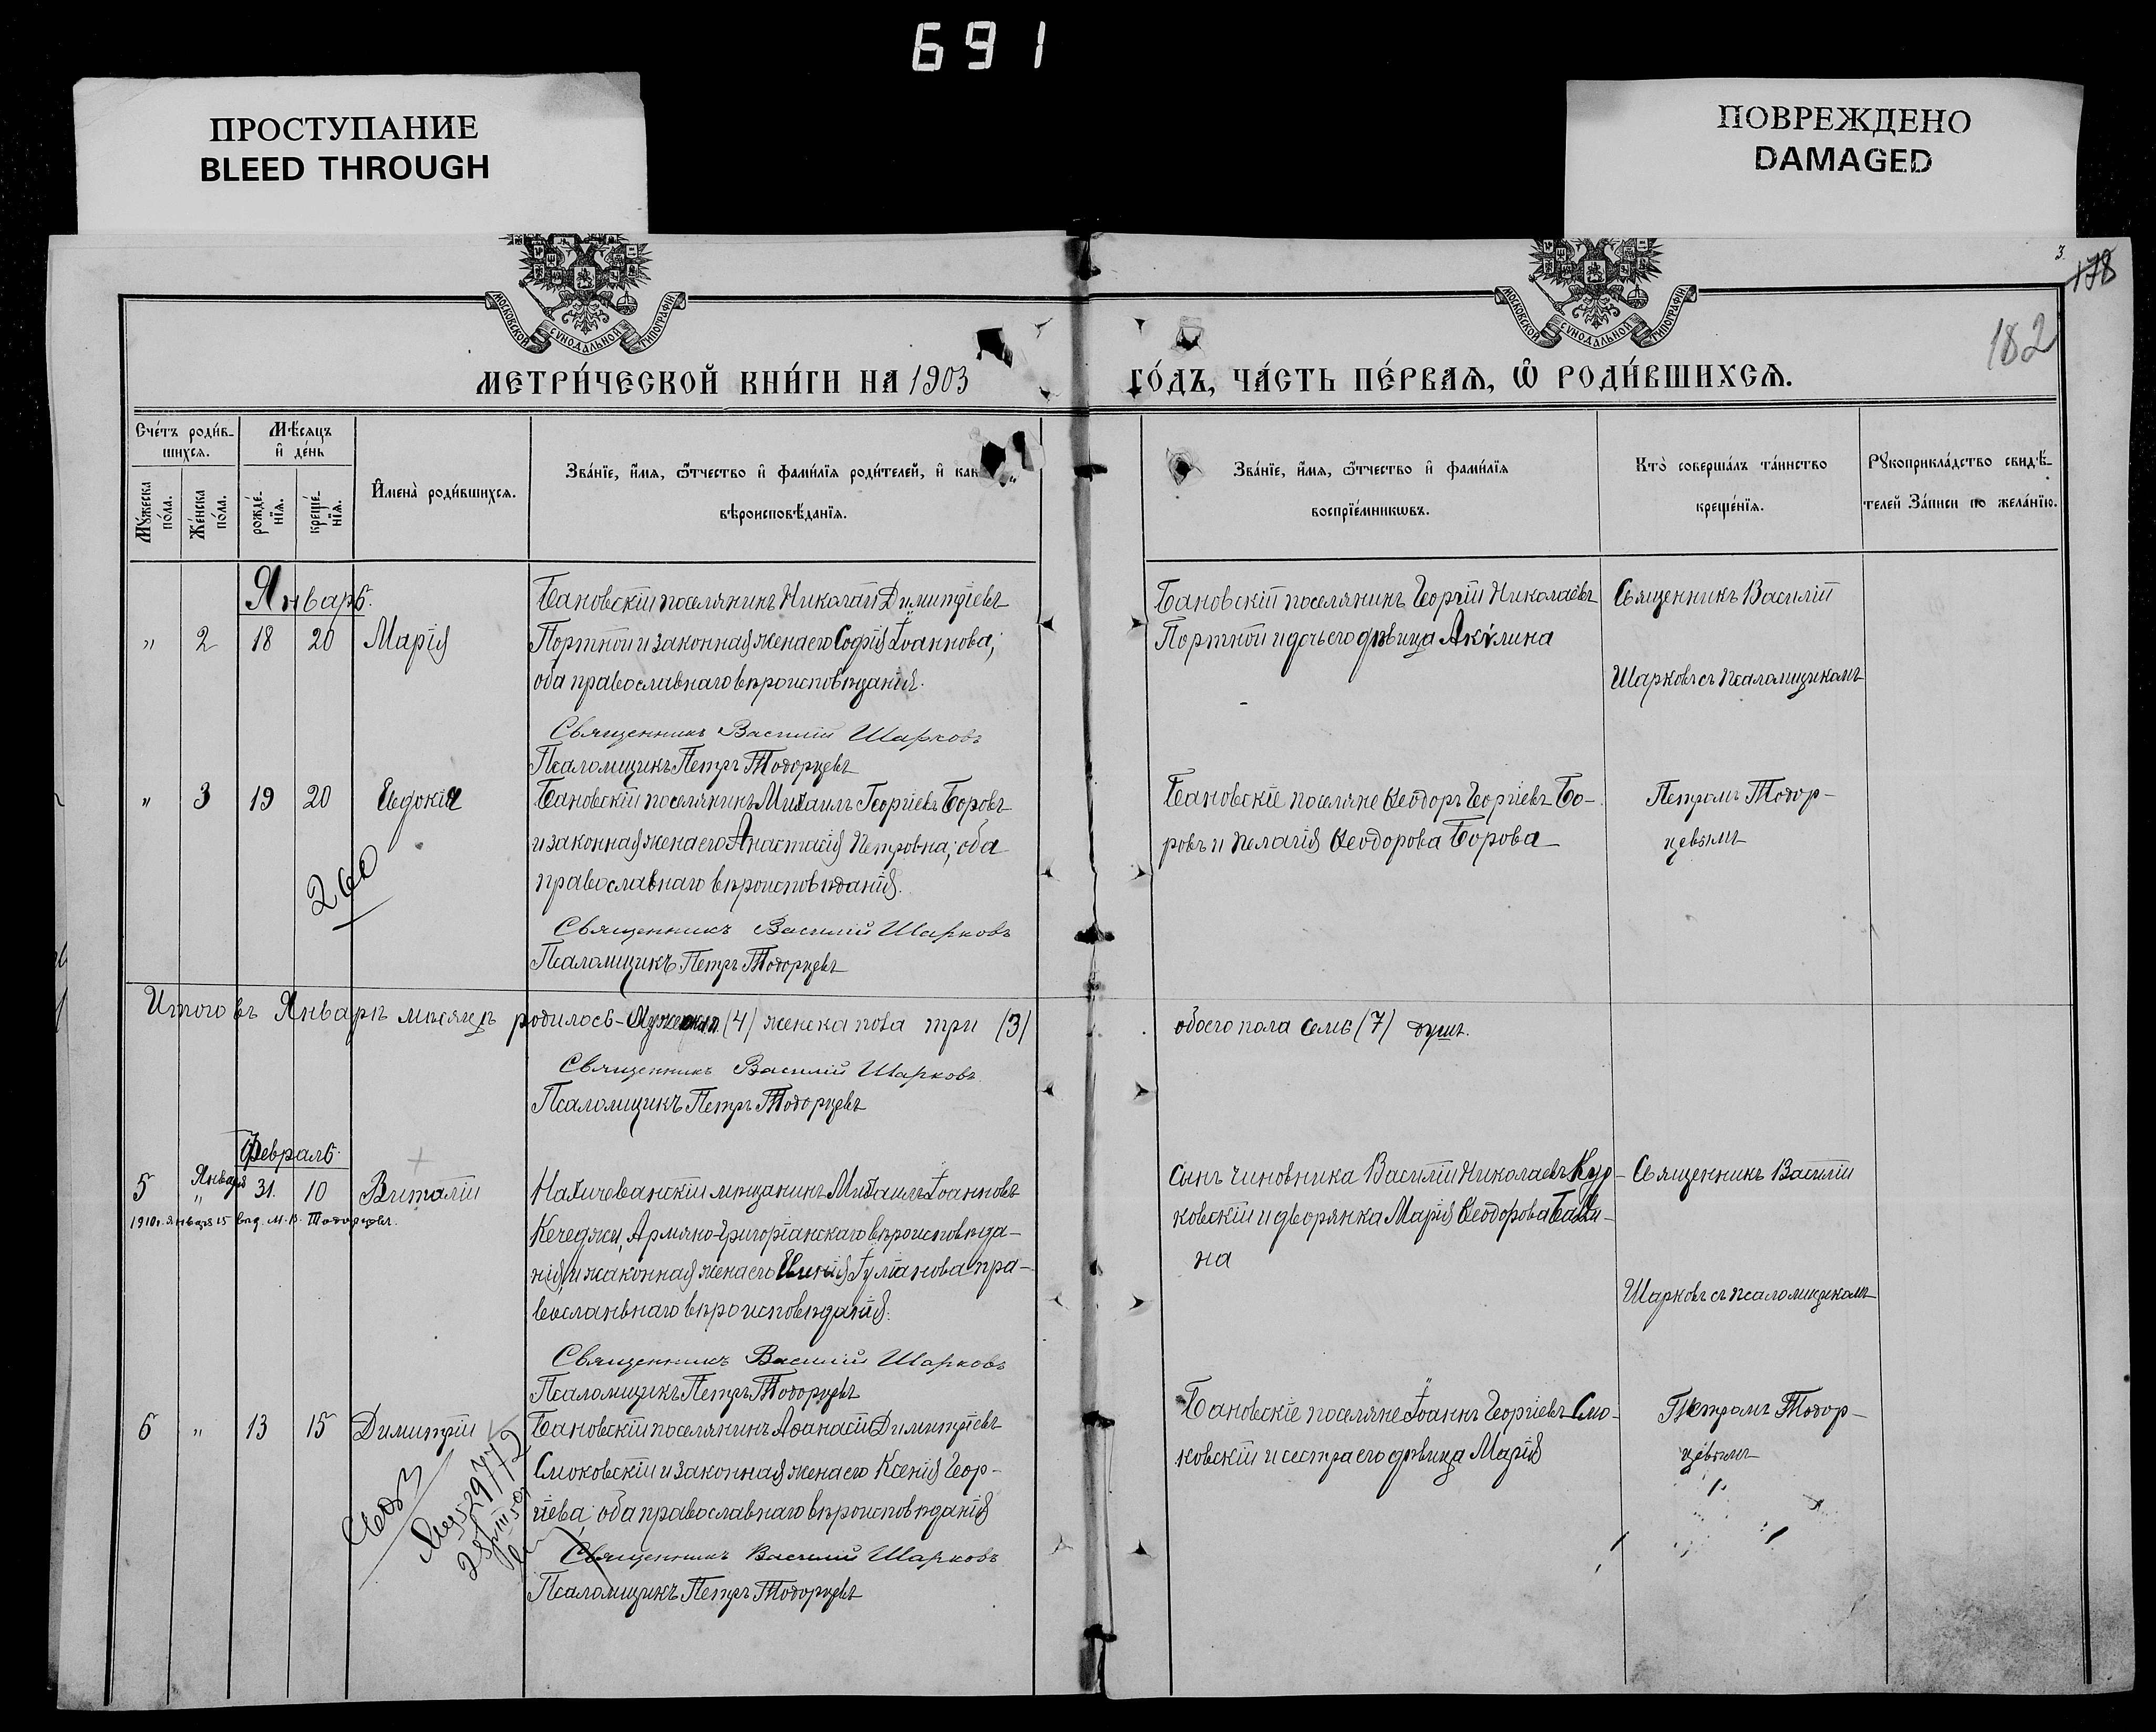 691
ПРОСТУПАНИЕ
BLEED THROUGH
ПОВРЕЖДЕНО
DAMAGED
МОСКОВСКОЙ СѴНОДАЛЬНОЙ ТИПОГРАФІИ
МОСКОВСКОЙ СѴНОДАЛЬНОЙ ТИПОГРАФІИ
3.
178
182
МЕТРИ́ЧЕСКОЙ КНИ́ГИ НА 1903
ГО́ДЪ, ЧА́СТЬ ПЕ́РВАѦ, Ѡ РОДИ́ВШИХСѦ.
Сче́тъ роди́в-
шихсѧ.
Мѣ́сѧцъ
и де́нь
Мꙋ́жеска
по́ла.
Же́нска
по́ла.
рожде́-
нїѧ.
креще́-
нїѧ.
И҆мена̀ роди́вшихсѧ.
Зва́нїе, и҆́мѧ, ѻ҆́тчество и҆ фами́лїѧ роди́телей, и҆ как
вѣроисповѣ́данїѧ.
Зва́нїе, и҆́мѧ, ѻ҆́тчество и҆ фами́лїѧ
воспрїе́мникѡвъ.
Кто̀ соверша́лъ та́инство
креще́нїѧ.
Рꙋкоприкла́дство свидѣ́-
телей за́писи по жела́нїю.
Январь.
" 2 18 20 Марія
Бановскій поселянинъ Николай Димитріевъ
Портной и законная жена его Софія Іоаннова;
оба православнаго вѣроисповѣданія.
Священникъ Василій Шарковъ
Псаломщикъ Петръ Тодорцевъ
Бановскій поселянинъ Георгій Николаевъ
Портной и дочь его дѣвица Акѵлина
Священникъ Василій
Шарковъ съ псаломщикомъ
" 3 19 20 Евдокія
260
Бановскій поселянинъ Михаилъ Георгіевъ Боровъ
и законная жена его Анастасія Петровна; оба
православнаго вѣроисповѣданія.
Священникъ Василій Шарковъ
Псаломщикъ Петръ Тодорцевъ
Бановскіе поселяне Ѳеодоръ Георгіевъ Бо-
ровъ и Пелагія Ѳеодорова Борова
Петромъ Тодор-
цевымъ
Итого въ Январѣ мѣсяцѣ родилось - (4) женска пола три (3)
обоего пола семь (7) душъ.
Священникъ Василій Шарковъ
Псаломщикъ Петръ Тодорцевъ
Февраль.
5 Января " 31. 10 Виталій
1910 г. января 15 выд. м. в. Тодорцевъ.
Нахичеванскій мѣщанинъ Михаилъ Іоанновъ
Кечеджи, Армяно-Григоріанскаго вѣроисповѣда-
нія, и законная жена его Іуліанова пра-
вославнаго вѣроисповѣданія.
Священникъ Василій Шарковъ
Псаломщикъ Петръ Тодорцевъ
Сынъ чиновника Василій Николаевъ Кур-
ковскій и дворянка Марія Ѳеодорова
на
Священникъ Василій
Шарковъ съ псаломщикомъ
6 " 13 15 Димитрій
Бановскій поселянинъ Аѳанасій Димитріевъ
Смоковскій и законная жена его Ксенія Геор-
гіева; оба православнаго вѣроисповѣданія
Священникъ Василій Шарковъ
Псаломщикъ Петръ Тодорцевъ
Бановскіе поселяне Іоаннъ Георгіевъ Смо-
ковскій и сестра его дѣвица Марія
Петромъ Тодор-
цевымъ